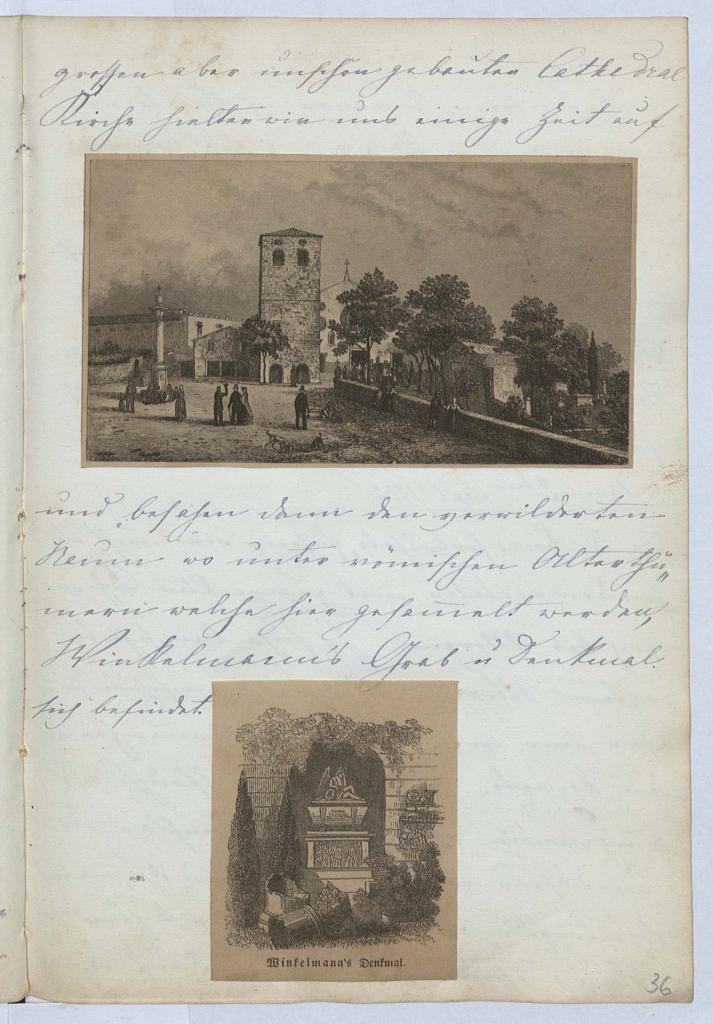 grossen aber unschön gebauten Cathedral
Kirche hielten wir uns einige Zeit auf
und besahen dann den verwilderten
Raum wo unter römischen Alterthü„
mern welche hier gesam̅elt werden,
Winkelmann's Grab u Denkmal.
sich befindet.
Winkelmann's Denkmal.
36